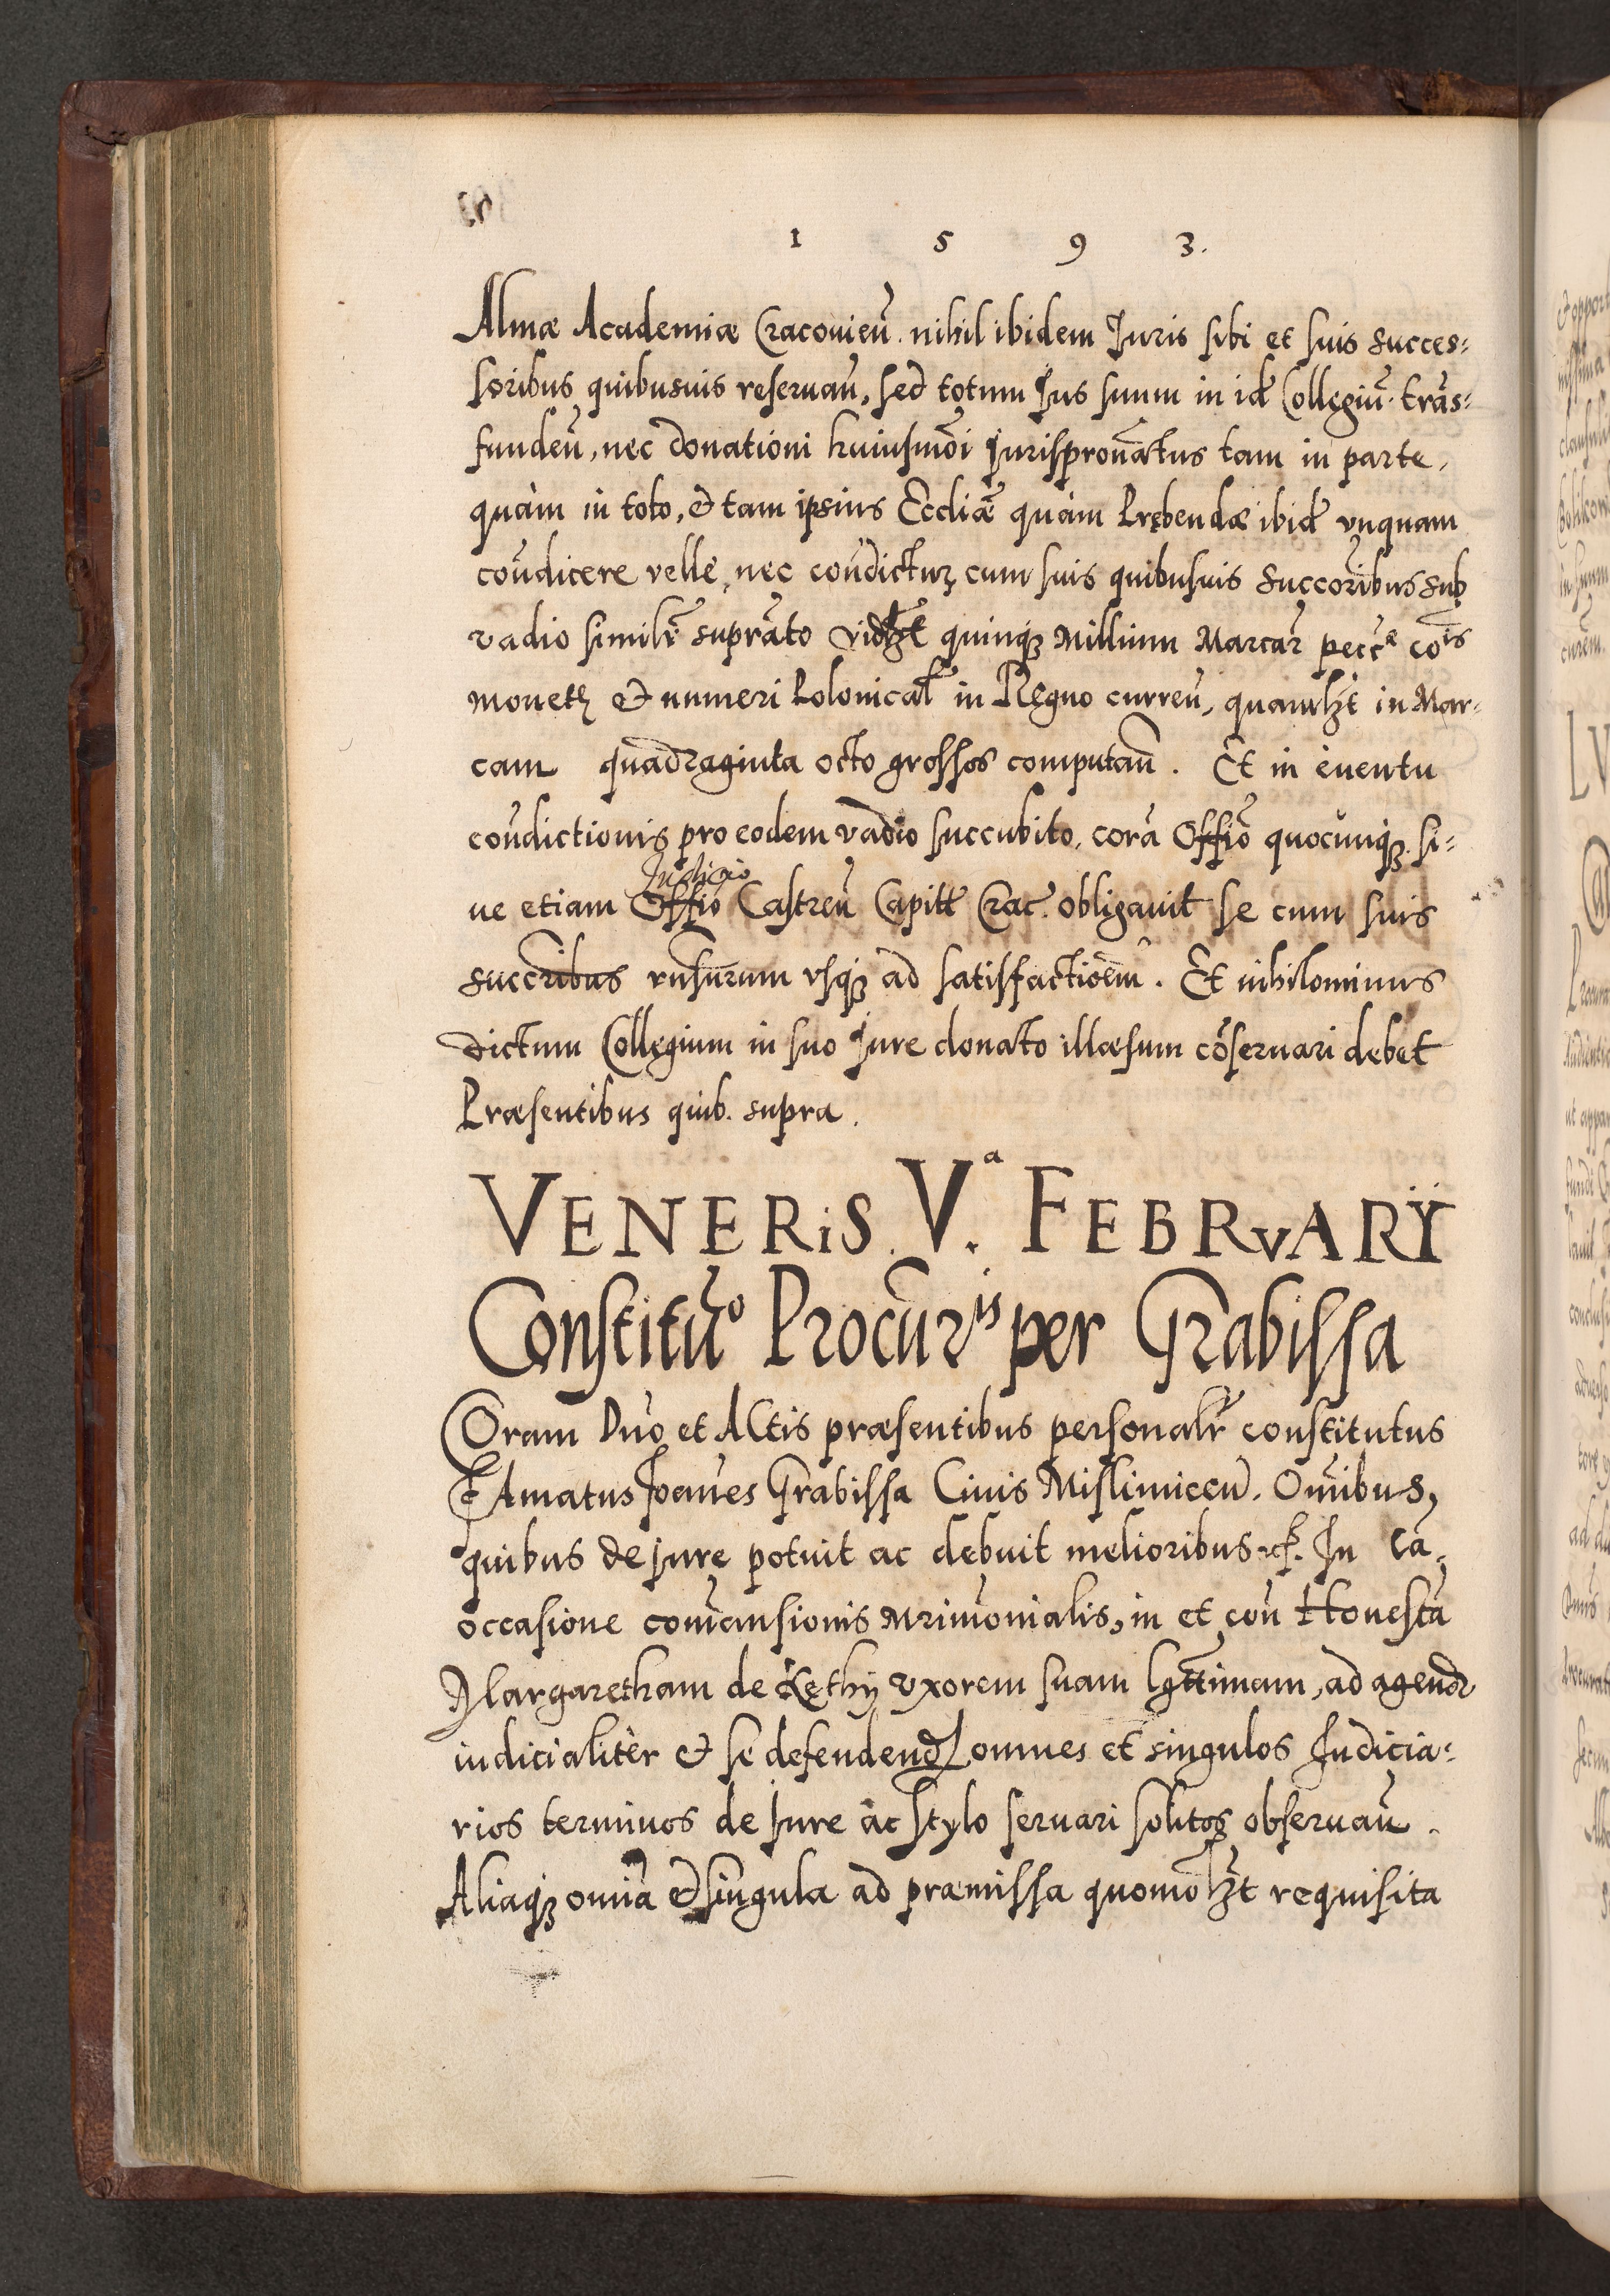 1 5 9 3.
Almæ Academiæ Cracovien̄. nihil ibidem Juris sibi et suis succes:
soribus quibusuis reseruan̄, sed totum Jus suum in id̄ Collegiū. trās:
funden̄, nec donationi huiusmōi Jurispronāctus tam in parte,
quàm in toto, & tam ipsius Eccliǣ quàm Prębendæ ibid̄ vnquam
con̄dicere velle, nec con̄dictuȝ cum suis quibusuis Succoribus sub
vadio simil̄r suprāto vidȝt quinqȝ Millium Marcar̄ pecc̄æ cōis
moneth & numeri Polonical̄ in Regno curren̄, quamlȝt in Mar:
cam quadraginta octo grossos computan̄. Et in euentu
con̄dictionis pro eodem vadio succubito. corā Offīo quocunqȝ. si:
Judicio
ue etiam Offīo Castren̄ Capitt̄ Crac. obligauit se cum suis
succr̄ibus rn̄surum vsqȝ ad satisfactiōem. Et nihilominus
dictum Collegium in suo Jure donato illæsum cōseruari debet
Præsentibus quib. supra.
VENERiS. V.ª FEBRvARIJ
Constitūo Procur̄is per Grabissa
Coram Dn̄o et ACtis præsentibus personal̄r constitutus
Famatus Joan̄es Grabissa Ciuis Mislimicen̄. Om̄ibus,
quibus de jure potuit ac debuit melioribus ꝛcꝭ. In Cā,
occasione com̄ansionis Mrimōnialis, in et con̄ Honestā
Margaretham de Kethÿ vxorem suam lgt̄timam, ad agend
iudicialitèr & se defendend omnes et singulos Judicia:
rios terminos de Jure ac stylo seruari solitos obseruan̄.
Aliaqȝ omīa & singula ad præmissa quomolȝt requisita